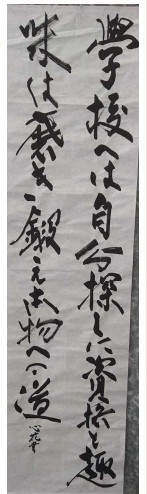 學校へは自分探しに資格と趣
味は磨き鍛え本物への道